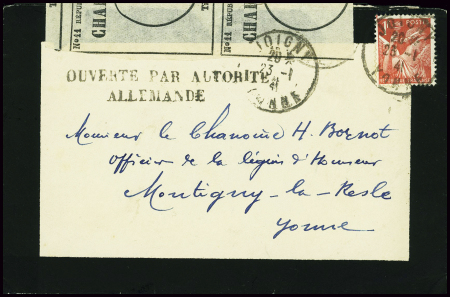 No 11 RÉPUB
CHA
No 11 RÉPUB
CHA
POSTE
JOIGNY
20
23 -1
41
YONNE
OUVERTE PAR AUTORITÉ
ALLEMANDE
Monsieur le Chanoine H. Bornot
Officier de la légion d'Honneur
Montigny-la-Resle
Yonne